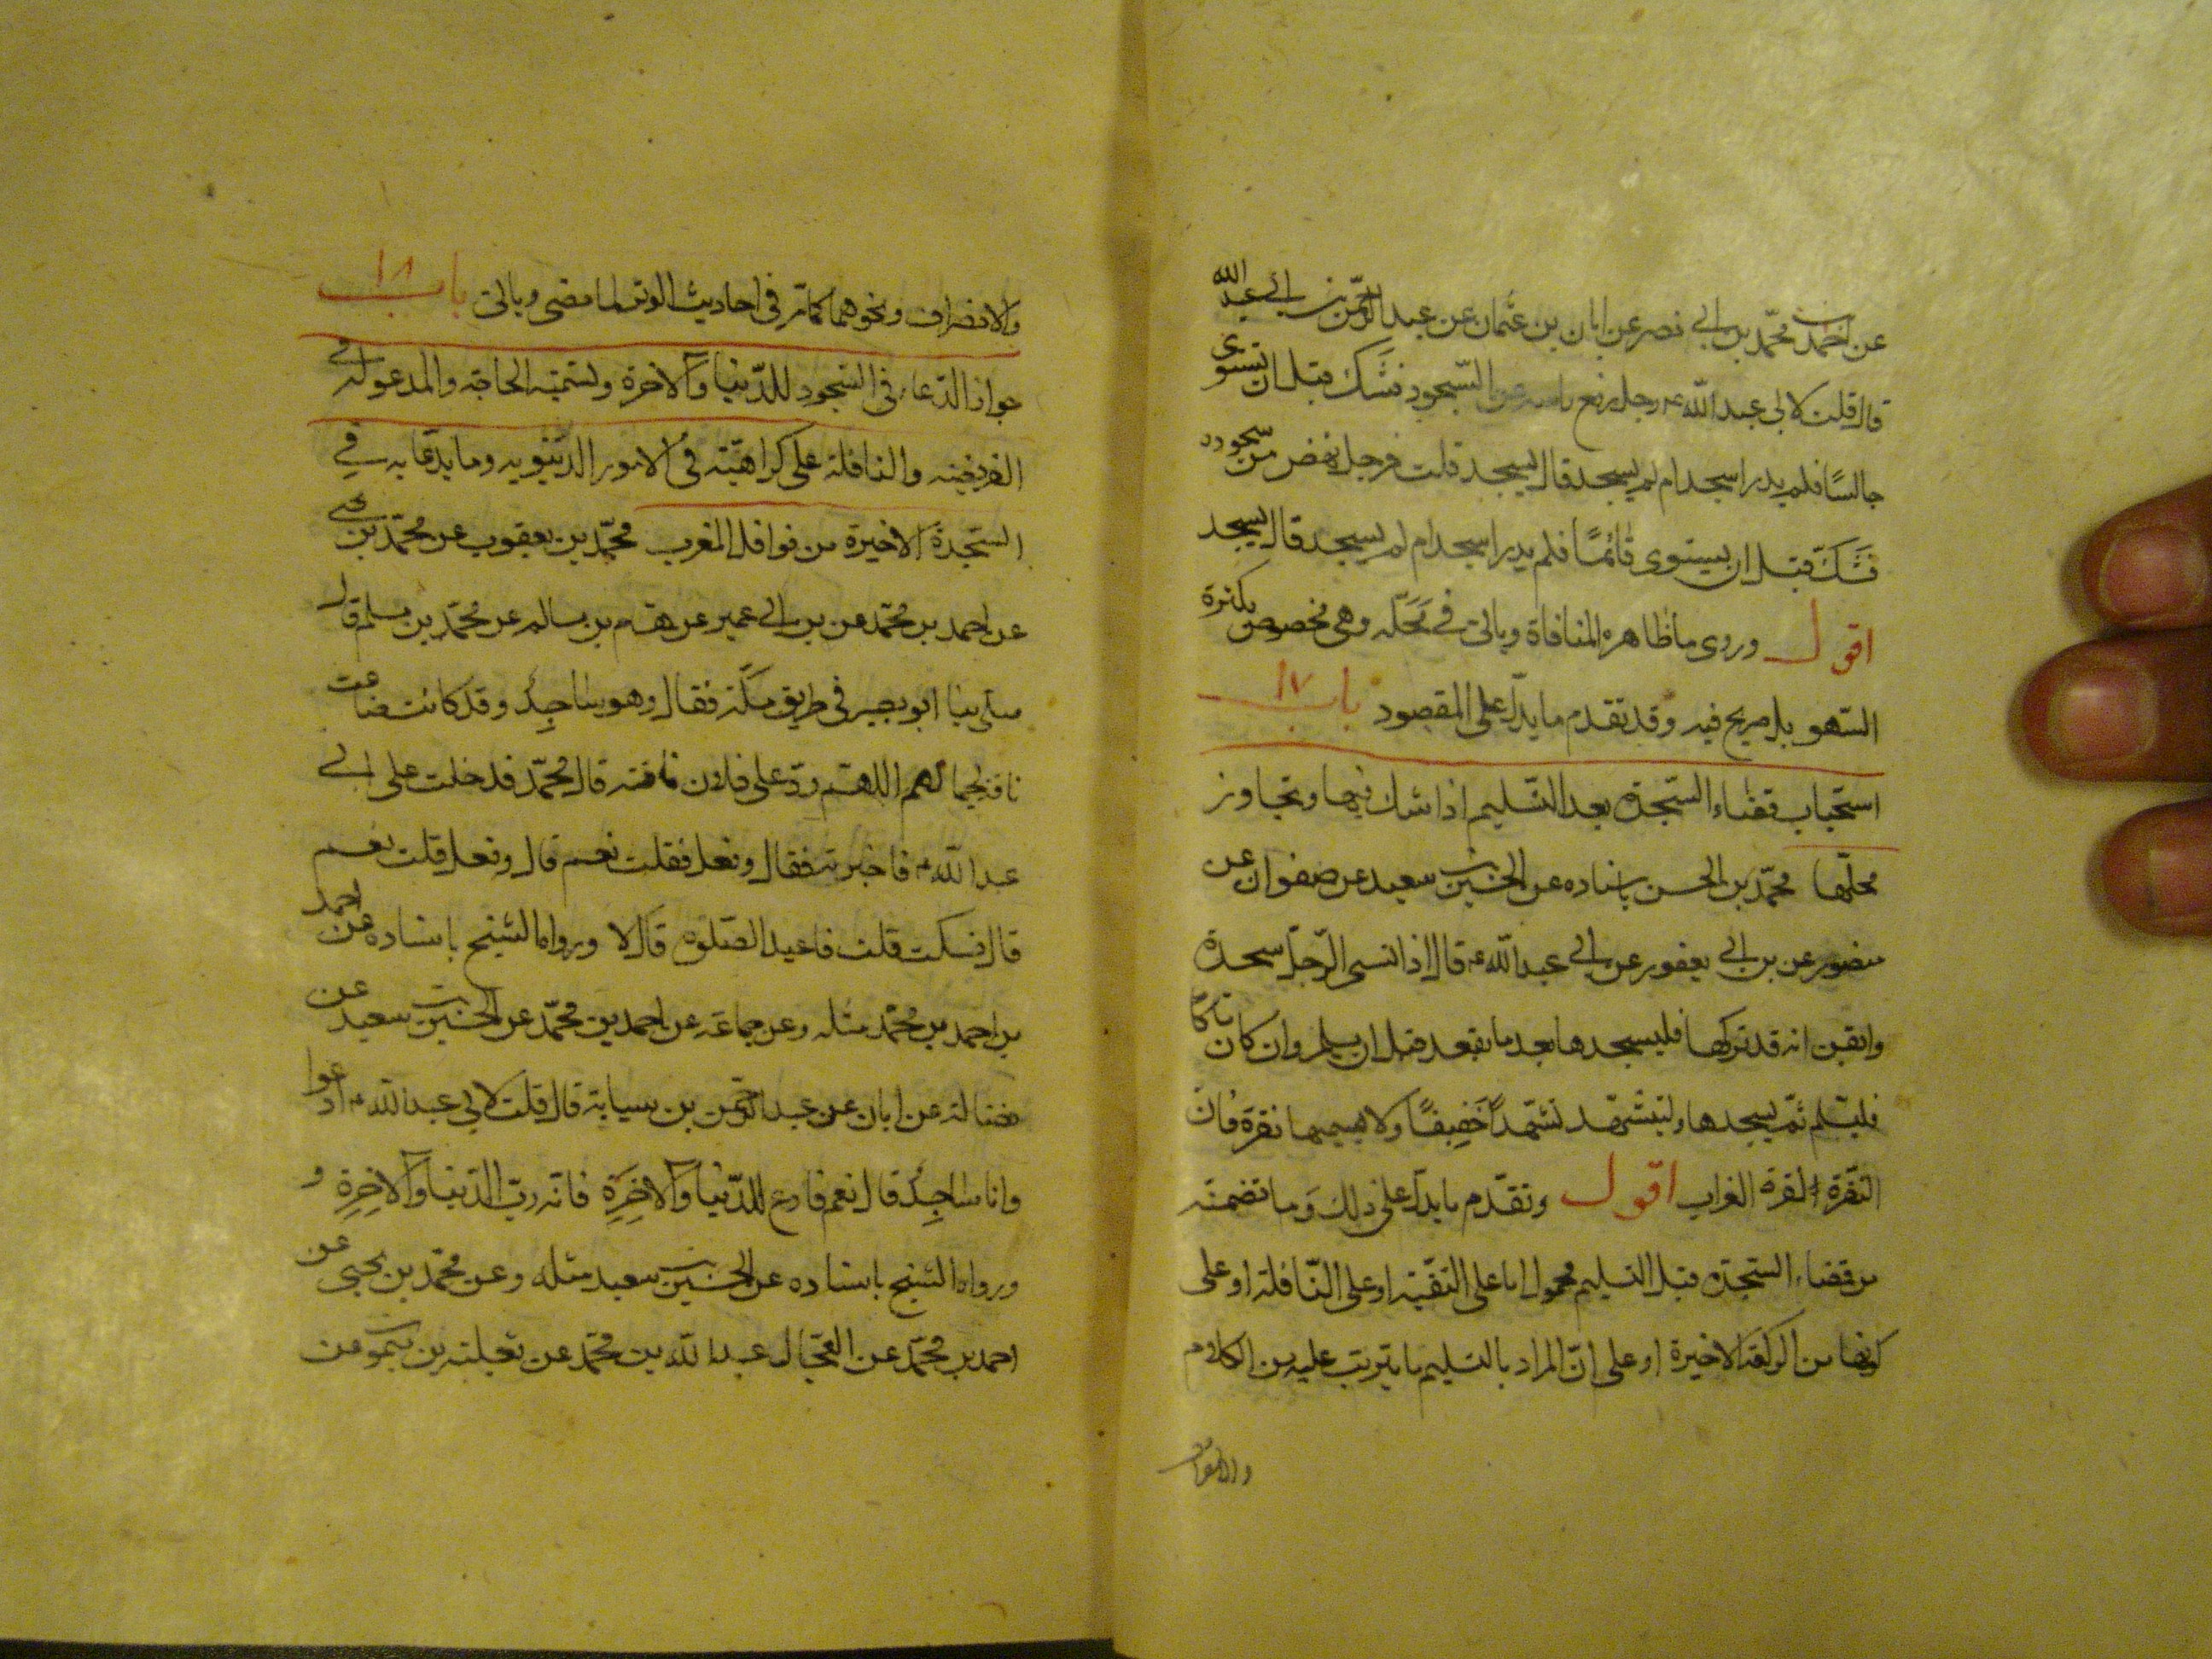 عن احمد بن محمّد بن ابي نصر عن ابان بن عثمان عن عبد الرحمن بن ابي عبد الله
قال قلت لابى عبد الله ع رجل رفع راسه عن السّجود فشكّ قبل ان يستوى
جالسًا فلم يدر اسجد ام لم يسجد قال يسجد قلت فرجل نهض من سجوده
فشكّ قبل ان يستوى قائمًا فلم يدر اسجد ام لم يسجد قال يسجد
اقول وروى ما ظاهره المنافاة وياتى في محلّه وهى مخصوص بكثرة
السّهو بل صريح فيه وقد تقدم ما يدلّ على المقصود باب ١٧
استحباب قضاء السّجدة بعد التسليم اذا شك فيها وتجاوز
محلّها محمّد بن الحسن باسناده عن الحسين بن سعيد عن صفوان عن
منصور عن بن ابي يعفور عن ابي عبد الله ع قال اذا نسى الرّجل سجدة
وايقن انه قد تركها فليسجدها بعد ما يقعد قبل ان يسلم وان كان شاكّا
فليسلّم ثمّ يسجدها وليتشهّد تشهّدًا خَفِيفًا ولا يسميها نقرة فان
النّقرة نقرة الغراب اقول وتقدّم ما يدلّ على ذلك وَما تضمنته
من قضاء السّجدة قبل التسليم محمول اما على التّقيّة او على النّافلة او على
كونها من الركعة الاخيرة او على انّ المراد بالتسليم ما يترتب عليه من الكلام
والانصراف
والانصراف ونحوهما كما مرّ في احاديث الوتر لما مضى وياتى باب ١٨
جواز الدّعاء في السّجود للدّنيا والآخرة وتسمية الحاجة والمدعو له في
الفريضة والنافلة على كراهيّة في الامور الدّنيوية وما يدعا به في
السّجدة الاخيرة من نوافل المغرب محمّد بن يعقوب عن محمّد بن يحيى
عن احمد بن محمّد عن بن ابي عمير عن هشام بن سالم عن محمّد بن مسلم قال
صلّى بنا ابو بصير في طريق مكّة فقال وهو ساجِدٌ وقد كانت ضاعت
ناقة لجمالهم اللهمّ ردّ على فلان ناقته قال محمّد فدخلت على ابي
عبد الله ع فاخبرته فقال وفعل فقلت نعم قال وفعل قلت نعم
قال فسكت قلت فاعيد الصّلوة قال لا ورواه الشيخ باسناده عن احمد
بن احمد بن محمّد مثله وعن جماعَة عن احمد بن محمّد عن الحسين بن سعيد عن
فضالة عن ابان عن عبد الرّحمن بن سيابة قال قلت لابي عبد الله ع ادعوا
وانا ساجِدٌ قال نعم فادع للدّنيا وَالآخِرَةِ فانّه ربّ الدّنيا وَالآخِرَةِ و
ورواه الشيخ باسناده عن الحسين بن سعيد مثله وعن محمّد بن يحيى عن
احمد بن محمّد عن الحجّال عبد الله بن محمّد عن ثعلبة بن ميمون عن